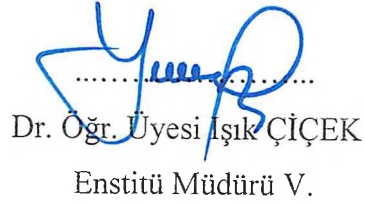 Dr. Öğr. Üyesi Işık ÇİÇEK
Enstitü Müdürü V.